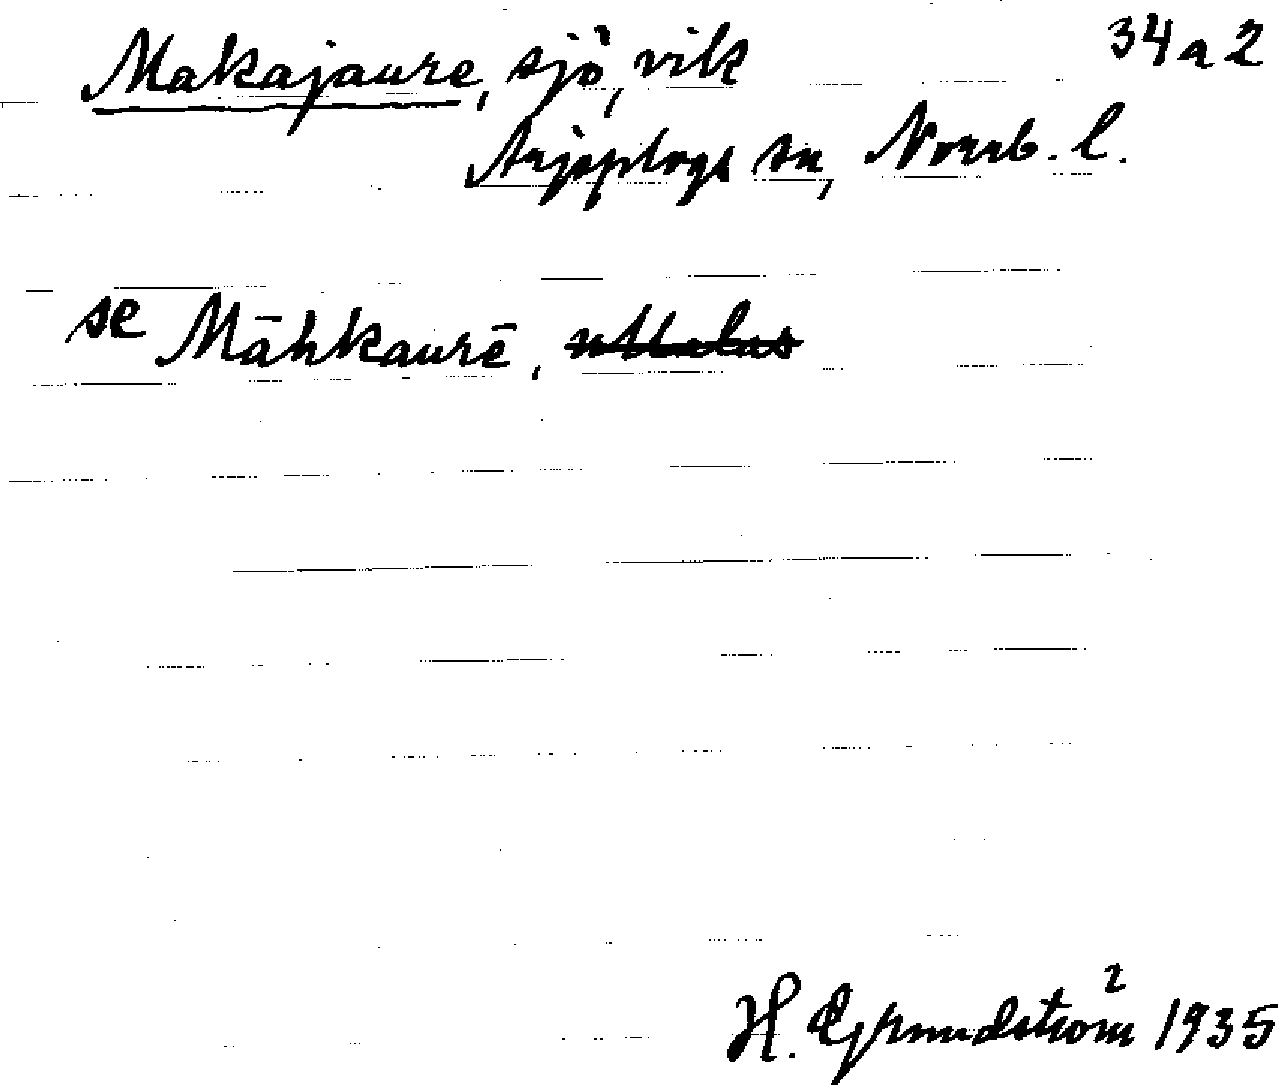 Makajaure, sjö, vik 34 a 2
Arjeplogs sn, Norrb. l.
se Māhkaurē,
H. Grundström 1935